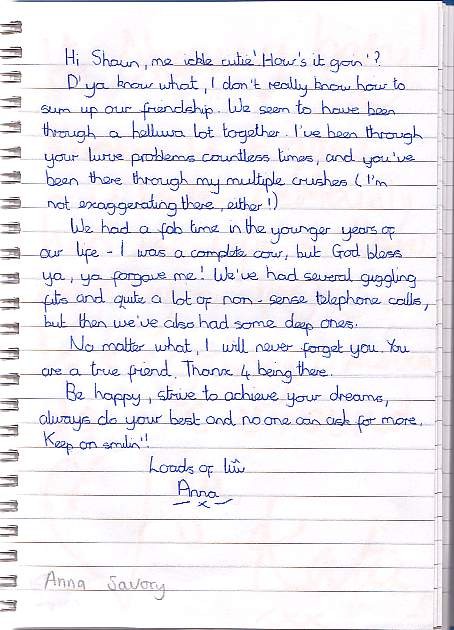 Hi Shaun, me ickle cutie! How's it goin'?
D'ya know what, I don't really know how to
sum up our friendship. We seem to have been
through a helluva lot together. I've been through
your lurve problems countless times, and you've
been there through my multiple crushes (I'm
not exaggerating there, either!)
We had a fab time in the younger years of
our life - I was a complete cow, but God bless
ya, ya forgave me! We've had several giggling
fits and quite a lot of non-sense telephone calls,
but then we've also had some deep ones.
No matter what, I will never forget you. You
are a true friend. Thanx 4 being there.
Be happy, strive to achieve your dreams,
always do your best and no one can ask for more.
Keep on smilin'!
Loads of
Anna
x
Anna Savory